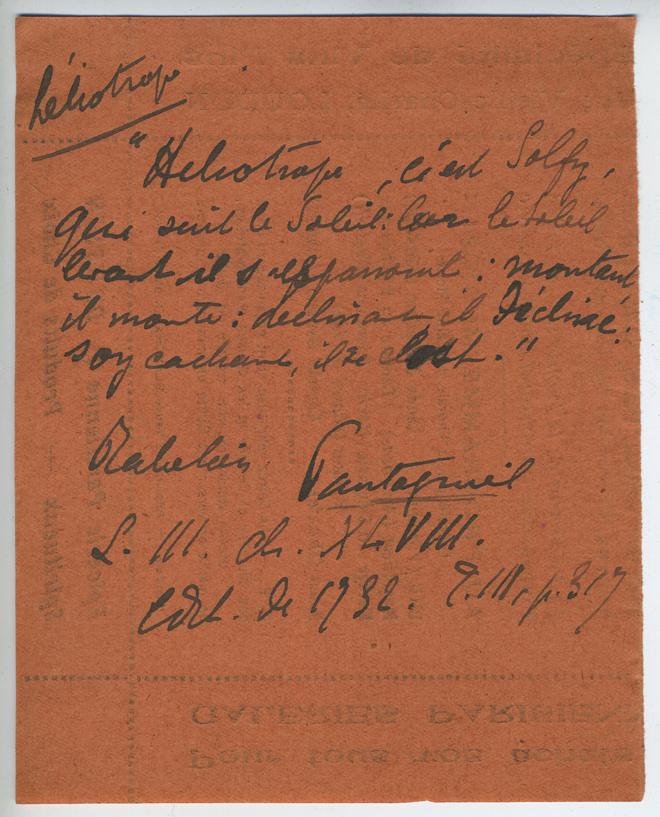 héliotrope
"Héliotrope, c'est Solfy,
qui suit le Soleil: le soleil
levant il s'espanouit : montant
il monte : declinant il décline :
soy cachant, il se clost."
Rabelais Pantagruel
L. III. ch. XLVIII.
Edit. de 1732. T. III, p. 317
GALERIES PARISIENN
Pour tous vos achats